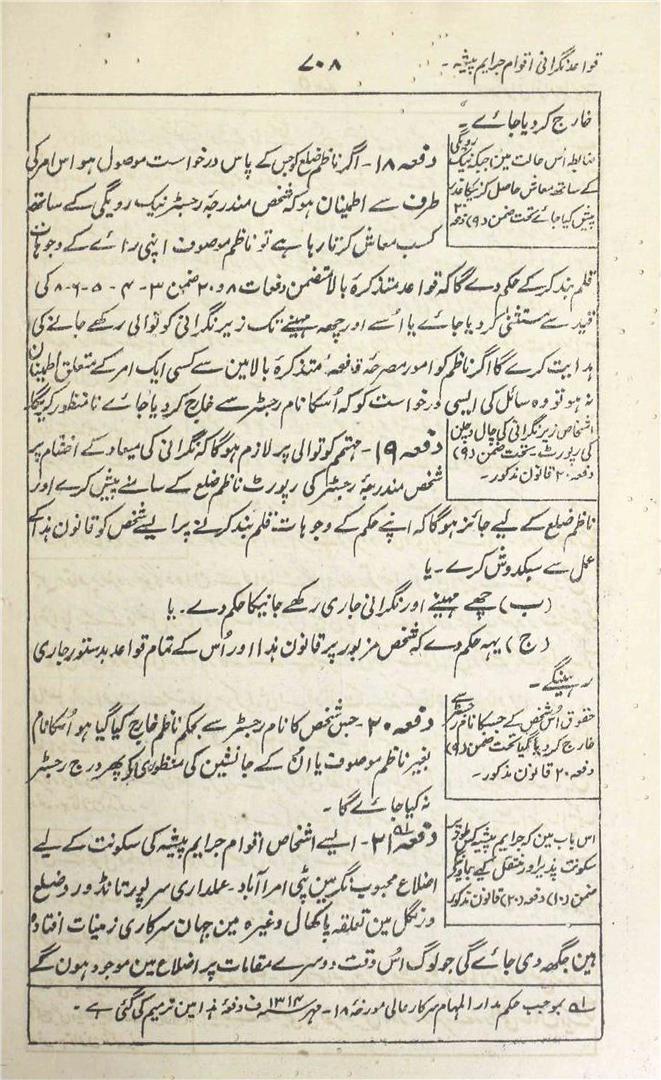 قواعد نگرانی اقوام جرایم پیشہ -
۷۰۸
خارج کر دیا جائے -
ضابطہ اُس حالت مین جبکہ نیک رویگی
کے ساتھ معاش حاصل کرنیکا عذر
پیش کیا جائے تحت ضمن (۹) دفعہ ۲۰
دفعہ ۱۸ - اگر ناظم ضلع کو جس کے پاس درخواست موصول ہو اس امر کی
طرف سے اطمینان ہو کہ شخص مندرجۂ رجسٹر نیک رویگی کے ساتھ
کسب معاش کرتا رہا ہے تو ناظم موصوف اپنی رائے کے وجوہات
قلم بند کر کے حکم دے گا کہ قواعد متذکرۂ بالا متضمن دفعات ۸ و ۲۰ ضمن ۳ - ۴ - ۵ - ۶ - ۸ کی
قید سے مستثنیٰ کر دیا جائے یا اُسے اور چھہ مہینے تک زیر نگرانی کوتوالی رکھے جانے کی
ہدایت کرے گا اگر ناظم کو امور مصرحۂ دفعہ متذکرۂ بالا مین سے کسی ایک امر کے متعلق اطمینان
نہ ہو تو وہ سائل کی ایسی درخواست کو کہ اُسکا نام رجسٹر سے خارج کر دیا جائے نامنظور کریگا
اشخاص زیر نگرانی کی چال چلن
کی رپورٹ تحت ضمن (۹)
دفعہ ۲۰ قانون مذکور -
دفعہ ۱۹ - مہتمم کوتوالی پر لازم ہوگا کہ نگرانی کی میعاد کے اختتام پر
شخص مندرجۂ رجسٹر کی رپورٹ ناظم ضلع کے سامنے پیش کرے اور
ناظم ضلع کے لیے جائز ہوگا کہ اپنے حکم کے وجوہات قلم بند کرنے پر ایسے شخص کو قانون ہذا کے
عمل سے سبکدوش کرے - یا
(ب) چھے مہینے اور نگرانی جاری رکھے جانیکا حکم دے - یا
(ج) یہہ حکم دے کہ شخص مزبور پر قانون ہذا اور اُس کے تمام قواعد بدستور جاری
رہینگے -
حقوق اُس شخص کے جسکا نام رجسٹر سے
خارج کر دیا گیا تحت ضمن (۹)
دفعہ ۲۰ قانون مذکور -
دفعہ ۲۰ - جس شخص کا نام رجسٹر سے بحکم ناظم خارج کیا گیا ہو اُسکا نام
بغیر ناظم موصوف یا اُن کے جانشین کی منظوری کے پھر درج رجسٹر
نہ کیا جائے گا -
اس باب مین کہ جرایم پیشہ کس طور پر
سکونت پذیر اور منتقل کیے جاوینگے
ضمن (۱۰) دفعہ (۲۰) قانون مذکور
دفعہ ۲۱ ؎۱ - ایسے اشخاص اقوام جرایم پیشہ کی سکونت کے لیے
اضلاع محبوب نگر مین پٹی امرآباد - علداری سرپور تانڈور و ضلع
ورنگل مین تعلقہ پاکھال وغیرہ مین جہان سرکاری زمینات افتادہ
ہین جگھہ دی جائے گی جو لوگ اُس وقت دوسرے مقامات پر اضلاع مین موجود ہون گے
؎۱ بموجب حکم مدار المہام سرکار عالی مورخۂ ۱۸ - مہر ۱۳۱۴ ف دفعۂ ہذا مین ترمیم کی گئی ہے -